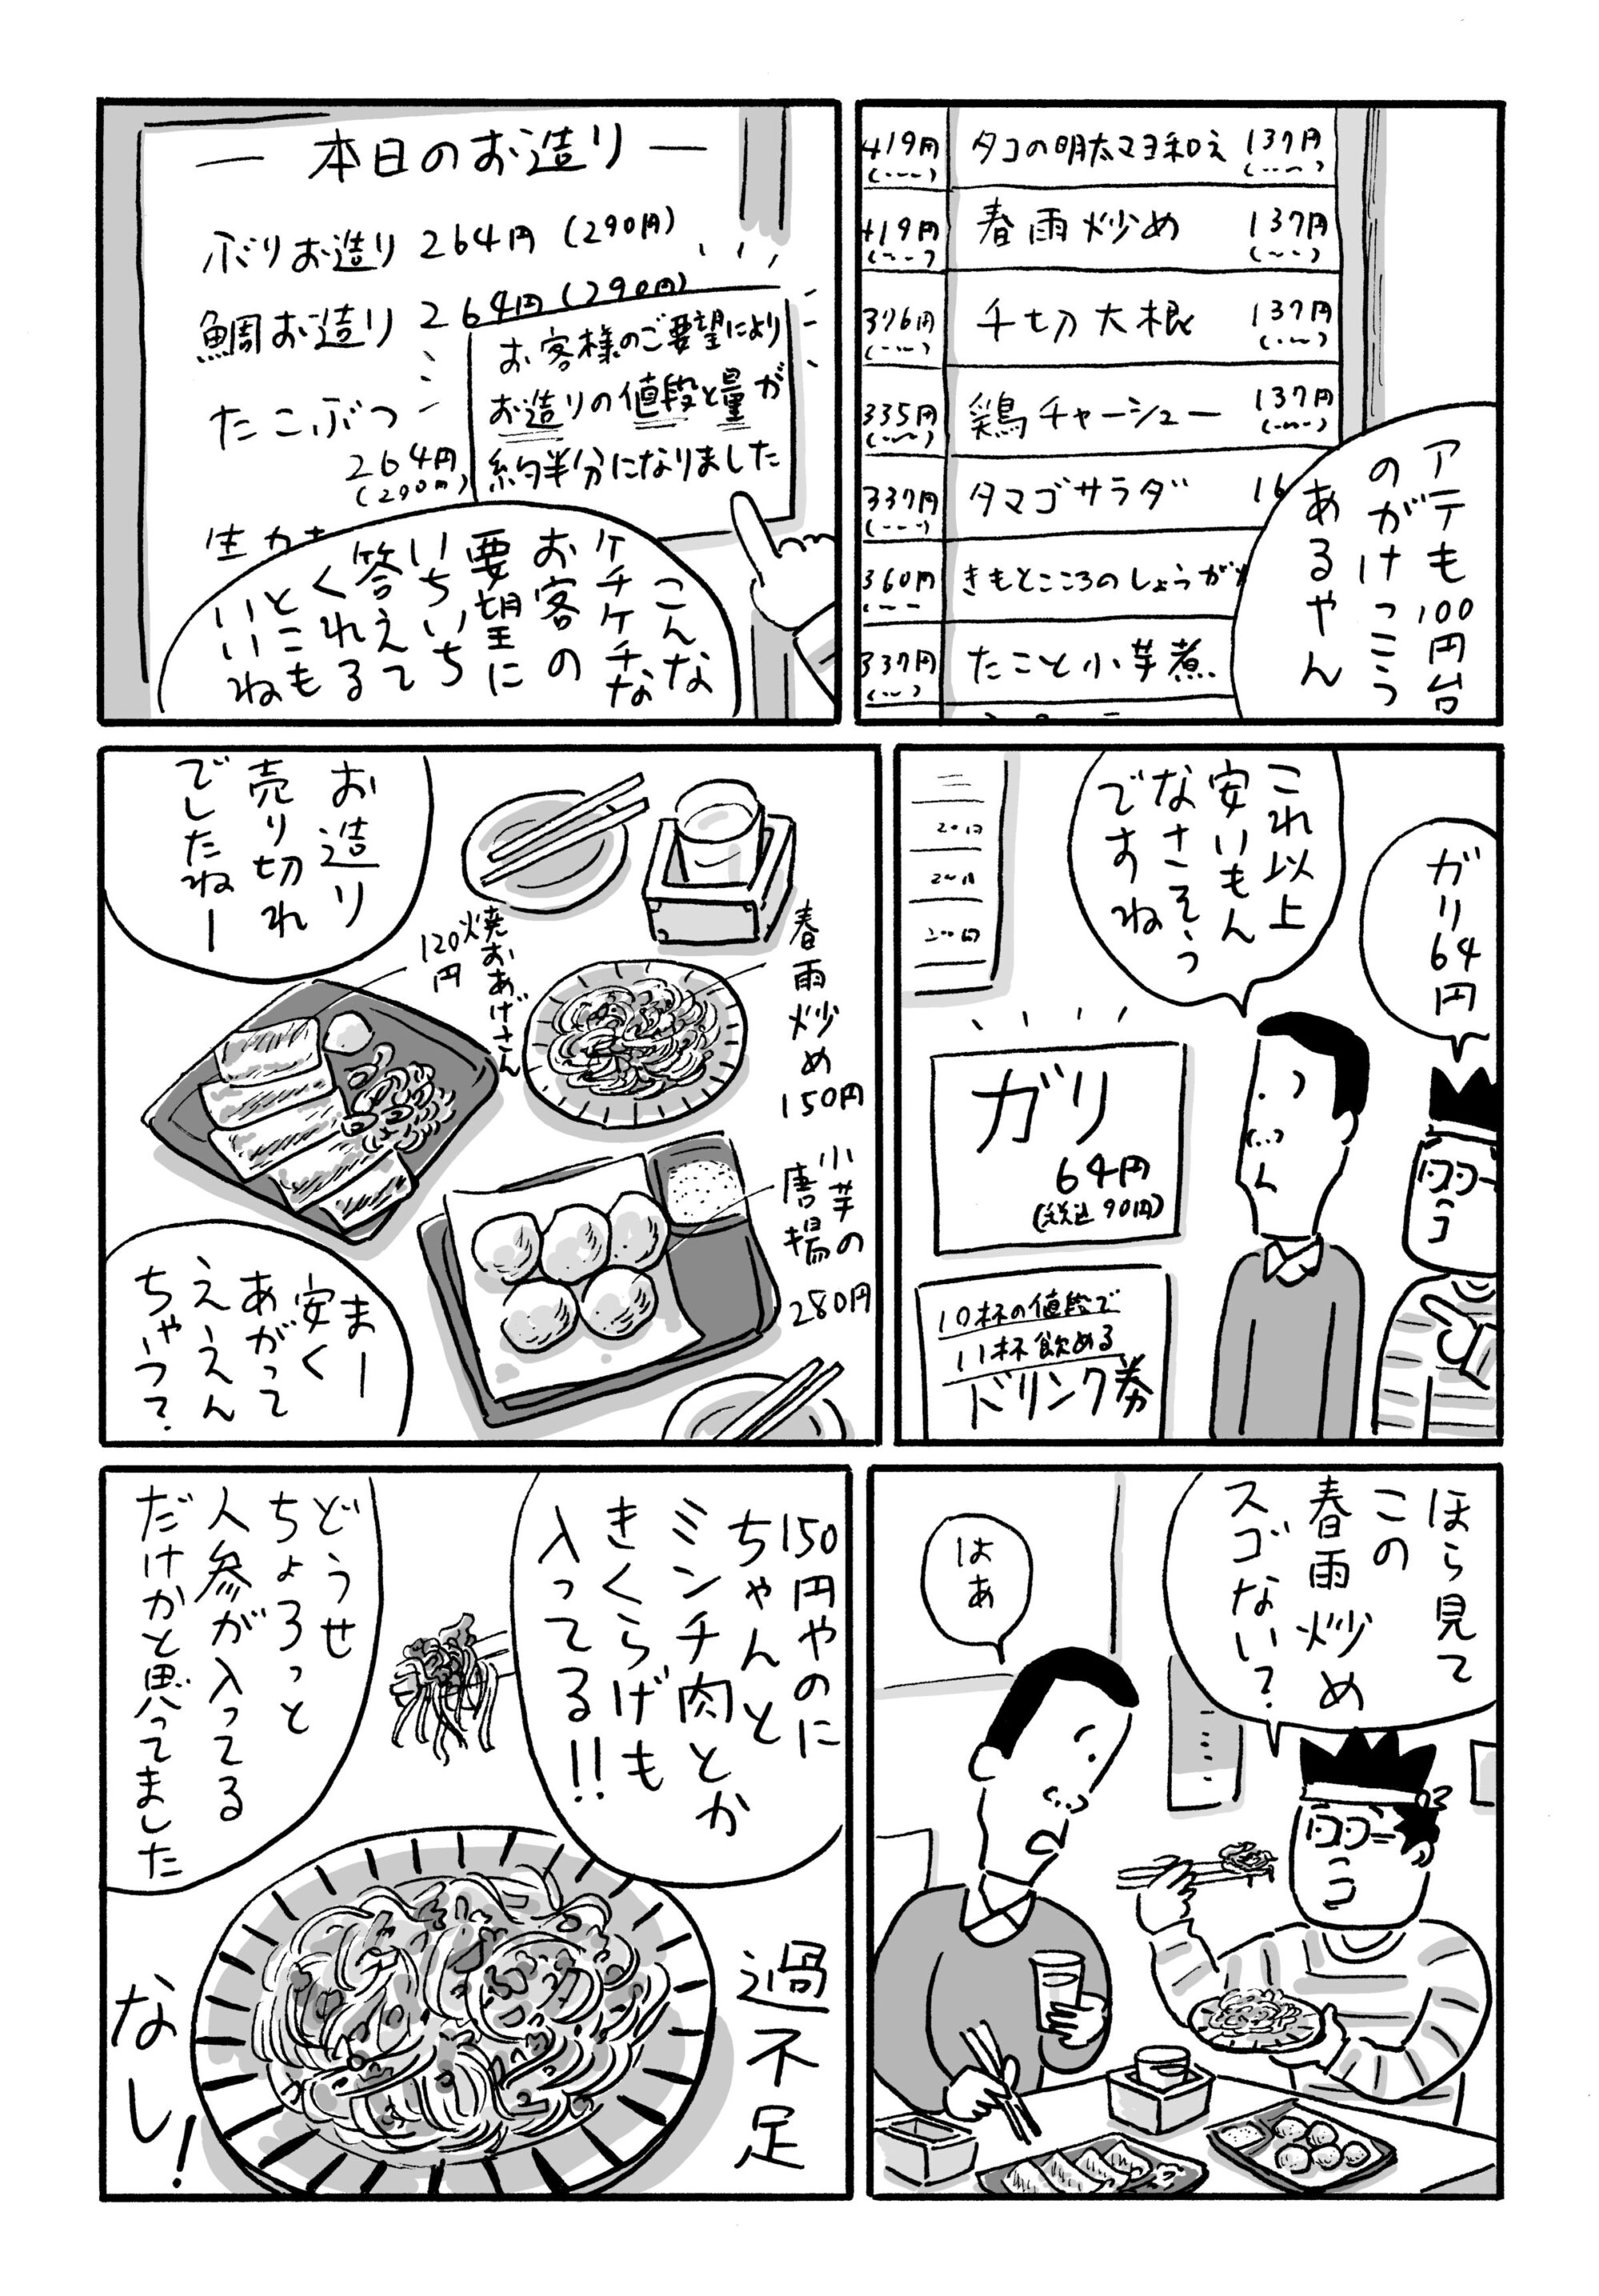 419円 タコの明太マヨ和え 137円
419円 春雨炒め 137円
376円 千切大根 137円
335円 鶏チャーシュー 137円
337円 タマゴサラダ 16
360円 きもとこころのしょうが
337円 たこと小芋煮
アテも100円台
のがけっこう
あるやん
― 本日のお造り ―
ぶりお造り 264円(290円)
鯛お造り 264円(290円)
たこぶつ
264円
(290円)
お客様のご要望により
お造りの値段と量が
約半分になりました
こんな
ケチケチな
お客の
要望に
いちいち
答えて
くれる
とこも
いいね
ガリ64円
これ以上
安いもん
なさそう
ですね
ガリ
64円
(税込90円)
10杯の値段で
11杯飲める
ドリンク券
お造り
売り切れ
でしたねー
春雨炒め150円
焼おあげさん
120円
小芋の
唐揚
280円
まー
安く
あがって
えーん
ちゃう?
ほら見て
この
春雨炒め
スゴない?
はあ
150円やのに
ちゃんと
ミンチ肉とか
きくらげも
入ってる!!
どうせ
ちょろっと
人参が入ってる
だけかと思ってました
過不足
なし!